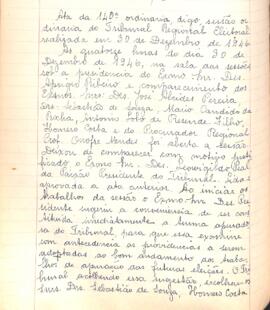 Ata da 140ª ordinaria digo sessão or
dinaria do Tribunal Regional Eleitoral
realizada em 30 de Dezembro de 1946
As quatorze horas do dia 30 de
Dezembro de 1946, na sala das sessões
sob a presidencia do Exmo snr. Des.
Aprigio Ribeiro e comparecimento dos
Exmos snrs. Des. José Alcides Pereira,
Drs. Sebastião de Souza, Mario Candido da
Rocha, Antonio de Resende Filho,
Homero Costa e do Procurador Regional
Prof. Onofre Mendes foi aberta a sessão
Deixou de comparecer com motivo justi
ficado, o Exmo snr. Des. Leovigildo Leal
da Paixão Presidente do Tribunal. Lida e
aprovada a ata anterior. Ao iniciar os
trabalhos da sessão o Exmo snr. Des. Pre
sidente sugeriu a conveniencia de ser cons
tituida imediatamente a turma apurado
ra do Tribunal, para que esta examine
com antecedencia as providencias a serem
adotadas ao bom andamento aos traba
lhos de apuração das futuras eleições. O Tri
bunal acolhendo essa sugestão, escolheu os
snrs. Drs. Sebastião de Souza, Homero Costa